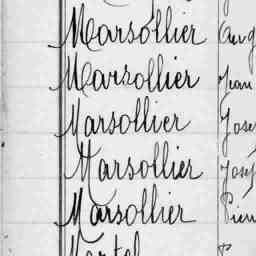 Marsollier Aug
Marsollier Jean
Marsollier Jose
Marsollier Josep
Marsollier Pierr
Martel P